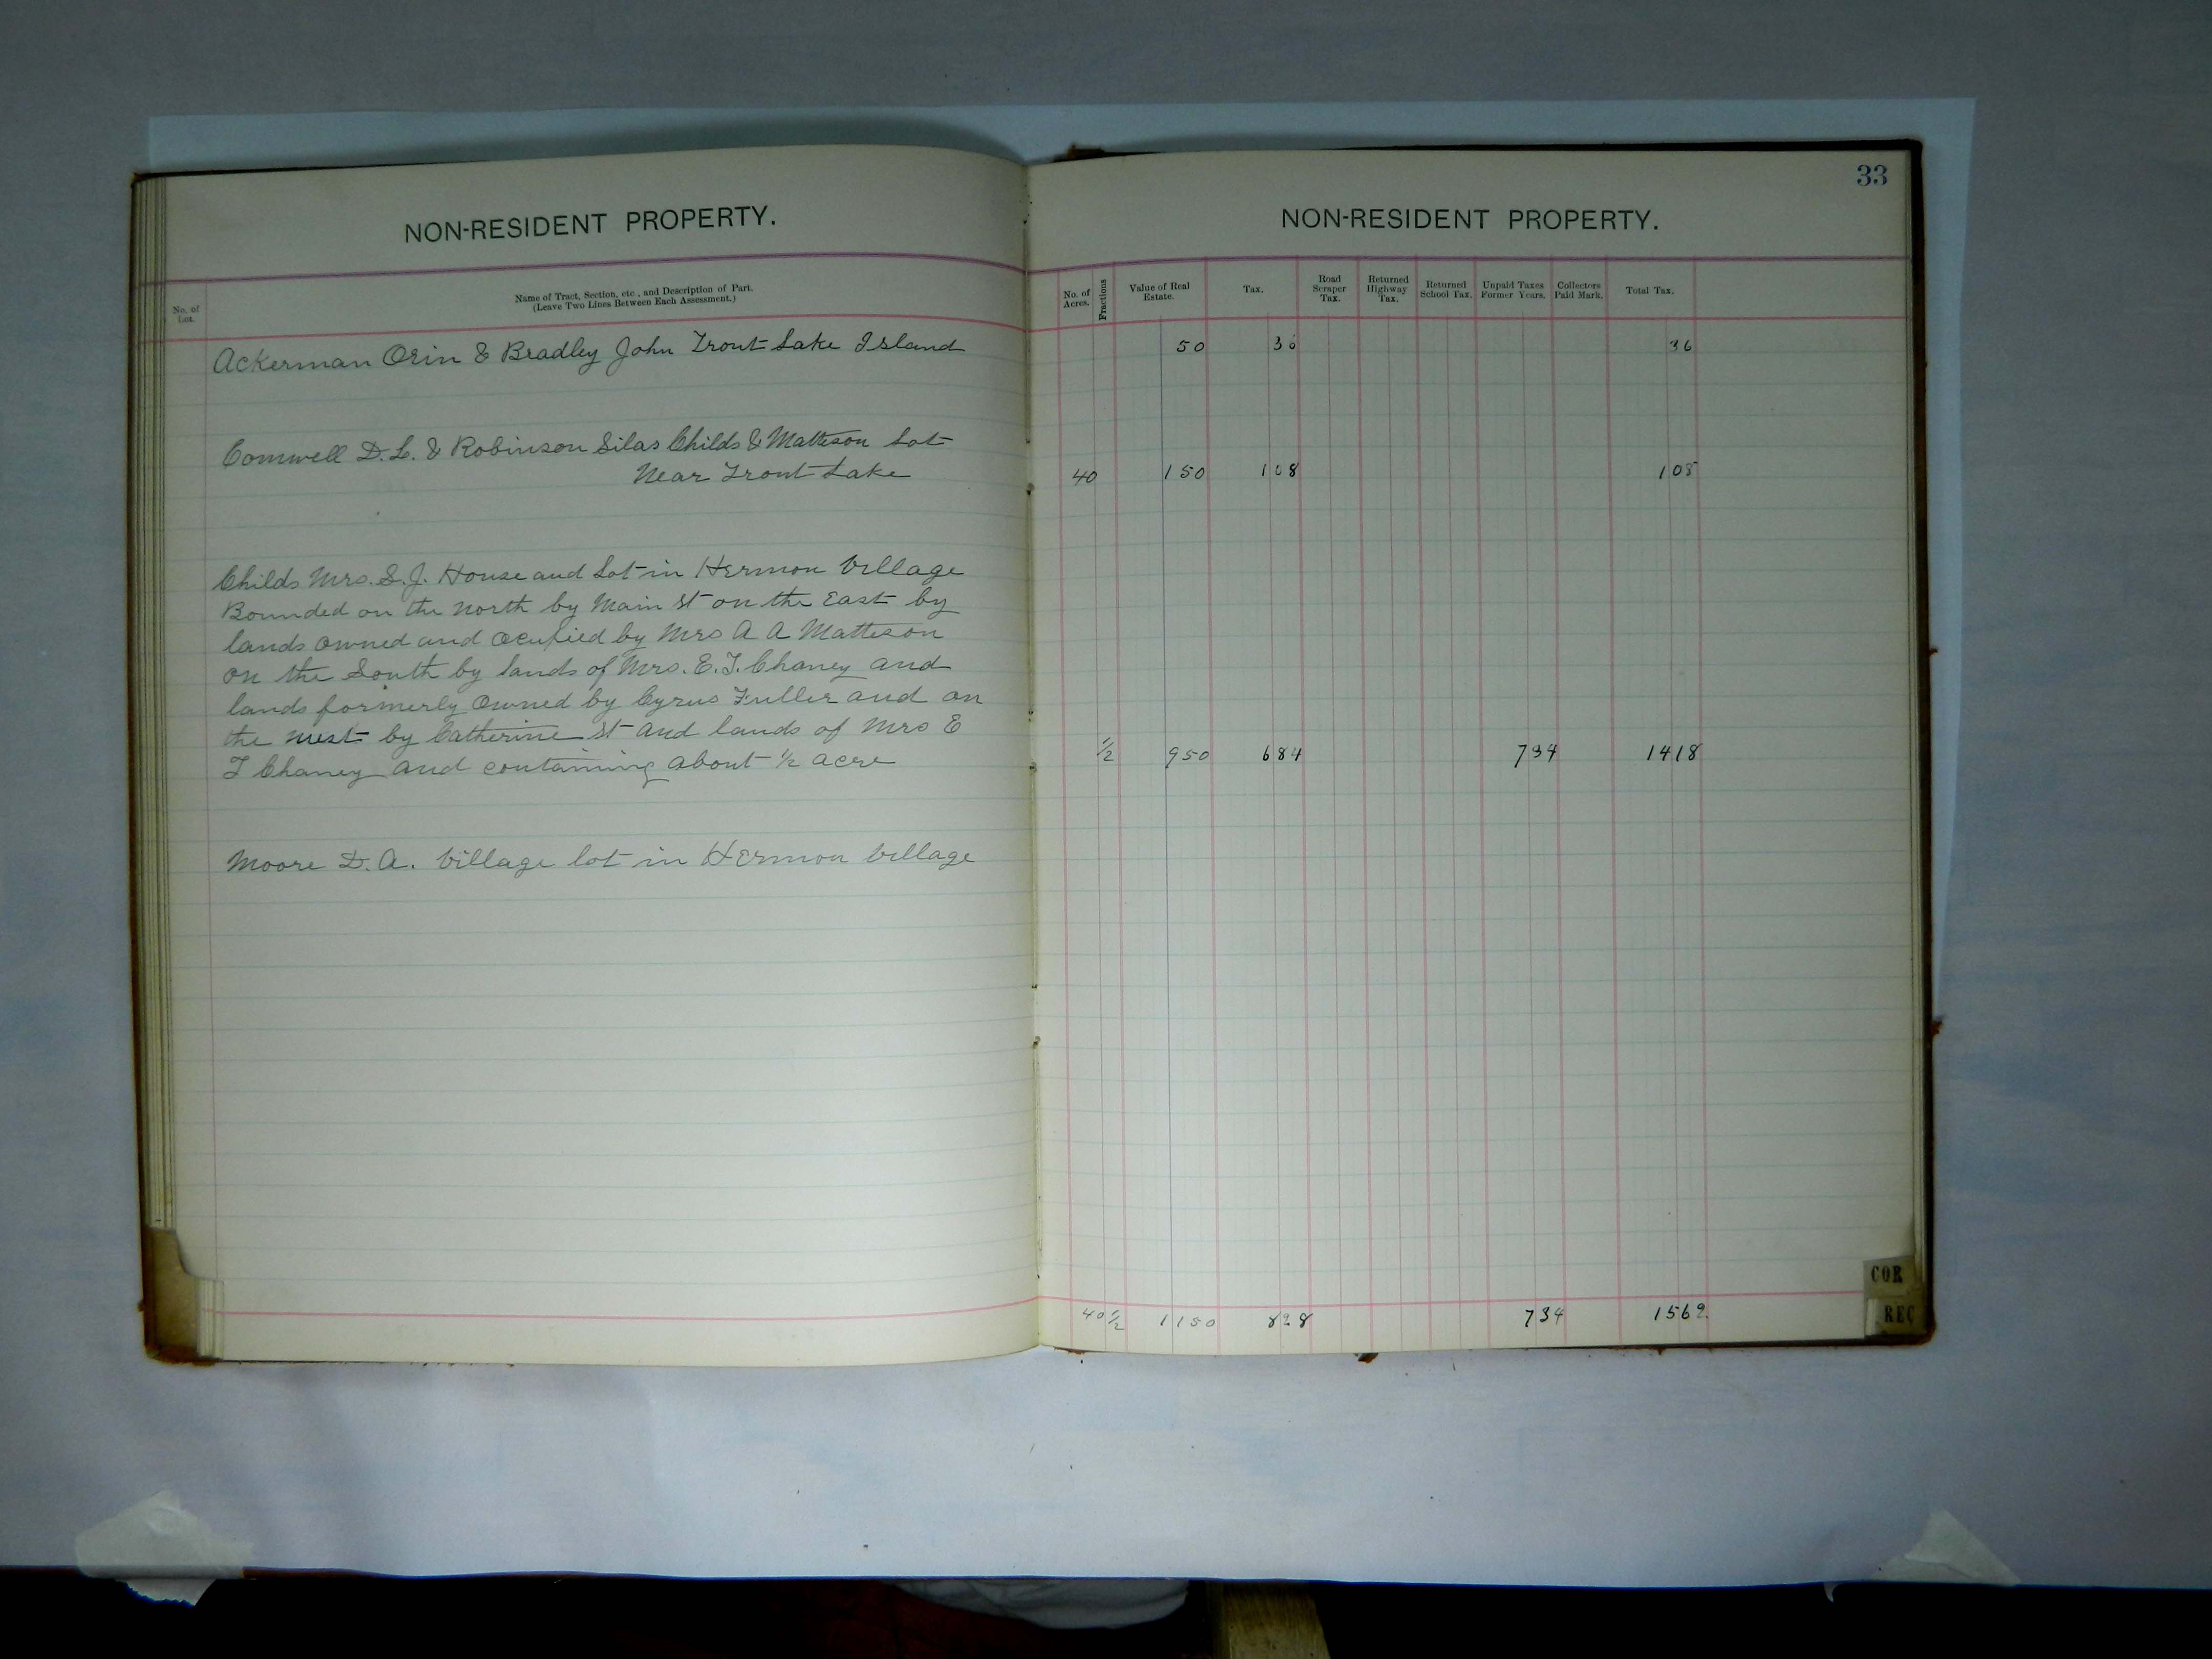 33
NON-RESIDENT PROPERTY.
No. of Lot.
Name of Tract, Section, etc., and Description of Part.
(Leave Two Lines Between Each Assessment.)
Ackerman Orin & Bradley John Trout Lake Island
Comwell D. L. & Robinson Silas Childs & Matteson Lot
Near Trout Lake
Childs Mrs. S. J. House and Lot in Hermon Village
Bounded on the north by Main St on the East by
lands owned and ocupied by Mrs A A Matteson
on the South by lands of Mrs. E. T. Chaney and
lands formerly owned by Cyrus Fuller and on
the west by Catherine St and lands of Mrs E
T Chaney and containing about ½ acre
Moore D. A. Village lot in Hermon Village
NON-RESIDENT PROPERTY.
No. of Acres. Fractions Value of Real Estate. Tax. Road Scraper Tax. Returned Highway Tax. Returned School Tax. Unpaid Taxes Former Years. Collectors Paid Mark. Total Tax.
50 36 36
40 150 108 108
½ 950 684 734 1418
40 ½ 1150 828 734 1562.
COR
REC